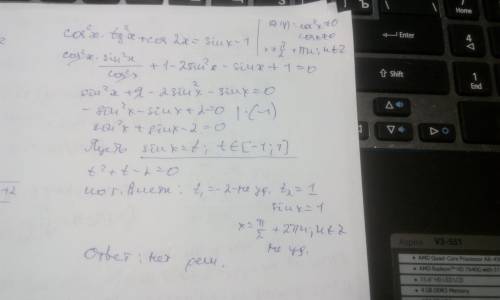 cos²x · tg²x + cos 2x = sinx - 1
cos²x ≠ 0
cosx ≠ 0
x ≠ π/2 + πn; n∈Z
cos²x · sin²x/cos²x + 1 - 2sin²x - sinx + 1 = 0
sin²x + 2 - 2sin²x - sinx = 0
- sin²x - sinx + 2 = 0 | · (-1)
sin²x + sinx - 2 = 0
Пусть sinx = t; t∈[-1; 1]
t² + t - 2 = 0
по т. Виета: t₁ = -2 - не уд. t₂ = 1
sinx = 1
x = π/2 + 2πn; n∈Z
не уд.
Ответ: нет реш.
12
Enter
Shift
4
1
End
V3-551
AMD Quad-Core Processor
AMD Radeon™ HD 7640G
4 GB DDR3 Memory